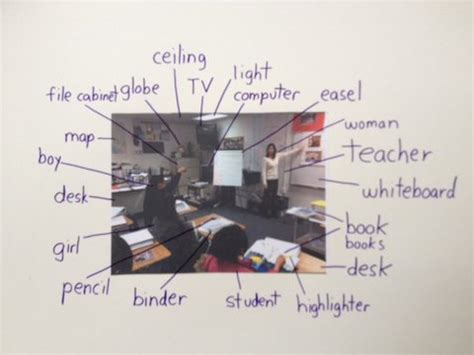 ceiling
file cabinet globe TV light
computer easel
map woman
boy teacher
desk whiteboard
girl book
books
pencil binder student highlighter desk